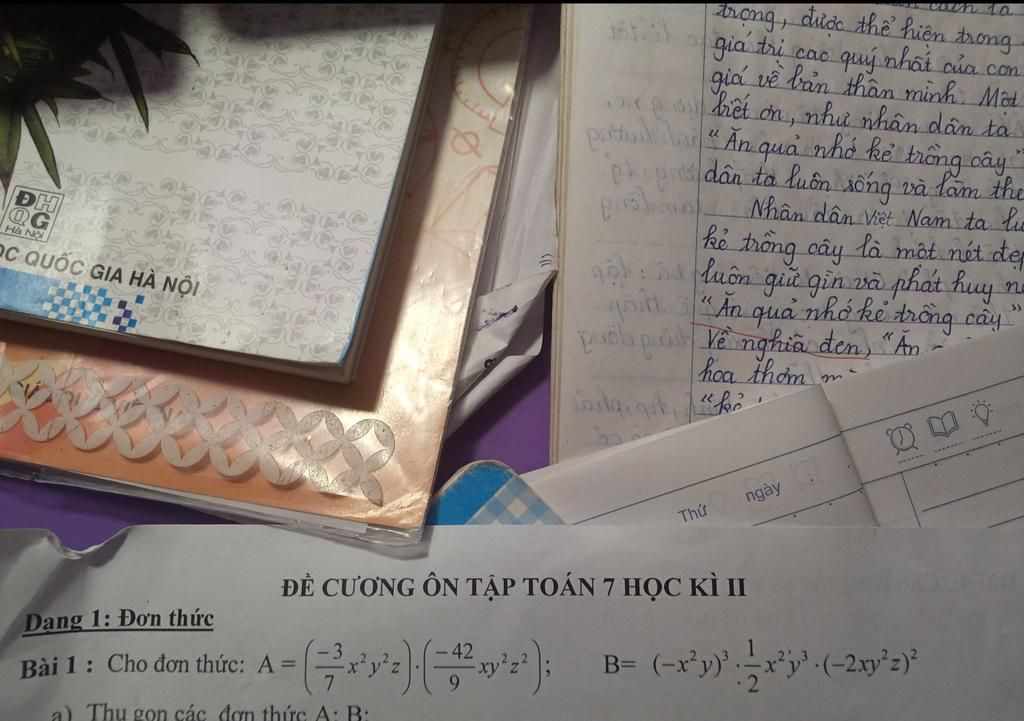 ĐHQG
Hà Nội
ỌC QUỐC GIA HÀ NỘI
trọng, được thể hiện trong
giá trị cao quý nhất của con
giá về bản thân mình. Một
biết ơn, như nhân dân ta
“Ăn quả nhớ kẻ trồng cây”
dân ta luôn sống và làm the
Nhân dân Việt Nam ta lu
kẻ trồng cây là một nét đẹp
luôn giữ gìn và phát huy n
“Ăn quả nhớ kẻ trồng cây”
Về nghĩa đen, “Ăn
hoa thơm
“kẻ
Thứ ngày
ĐỀ CƯƠNG ÔN TẬP TOÁN 7 HỌC KÌ II
Dạng 1: Đơn thức
Bài 1 : Cho đơn thức: A = (-3/7 x²y²z).(-42/9 xy²z²); B= (-x²y)³.1/2 x²y³.(-2xy²z)²
a) Thu gọn các đơn thức A; B;